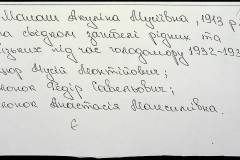 Мамаш Акулина Мусіївна, 1913 р.
свідком загибелі рідних та
під час голодомору 1932-193
Мусій Леонтійович;
Федір Савельович;
Анастасія Максимівна.
Є